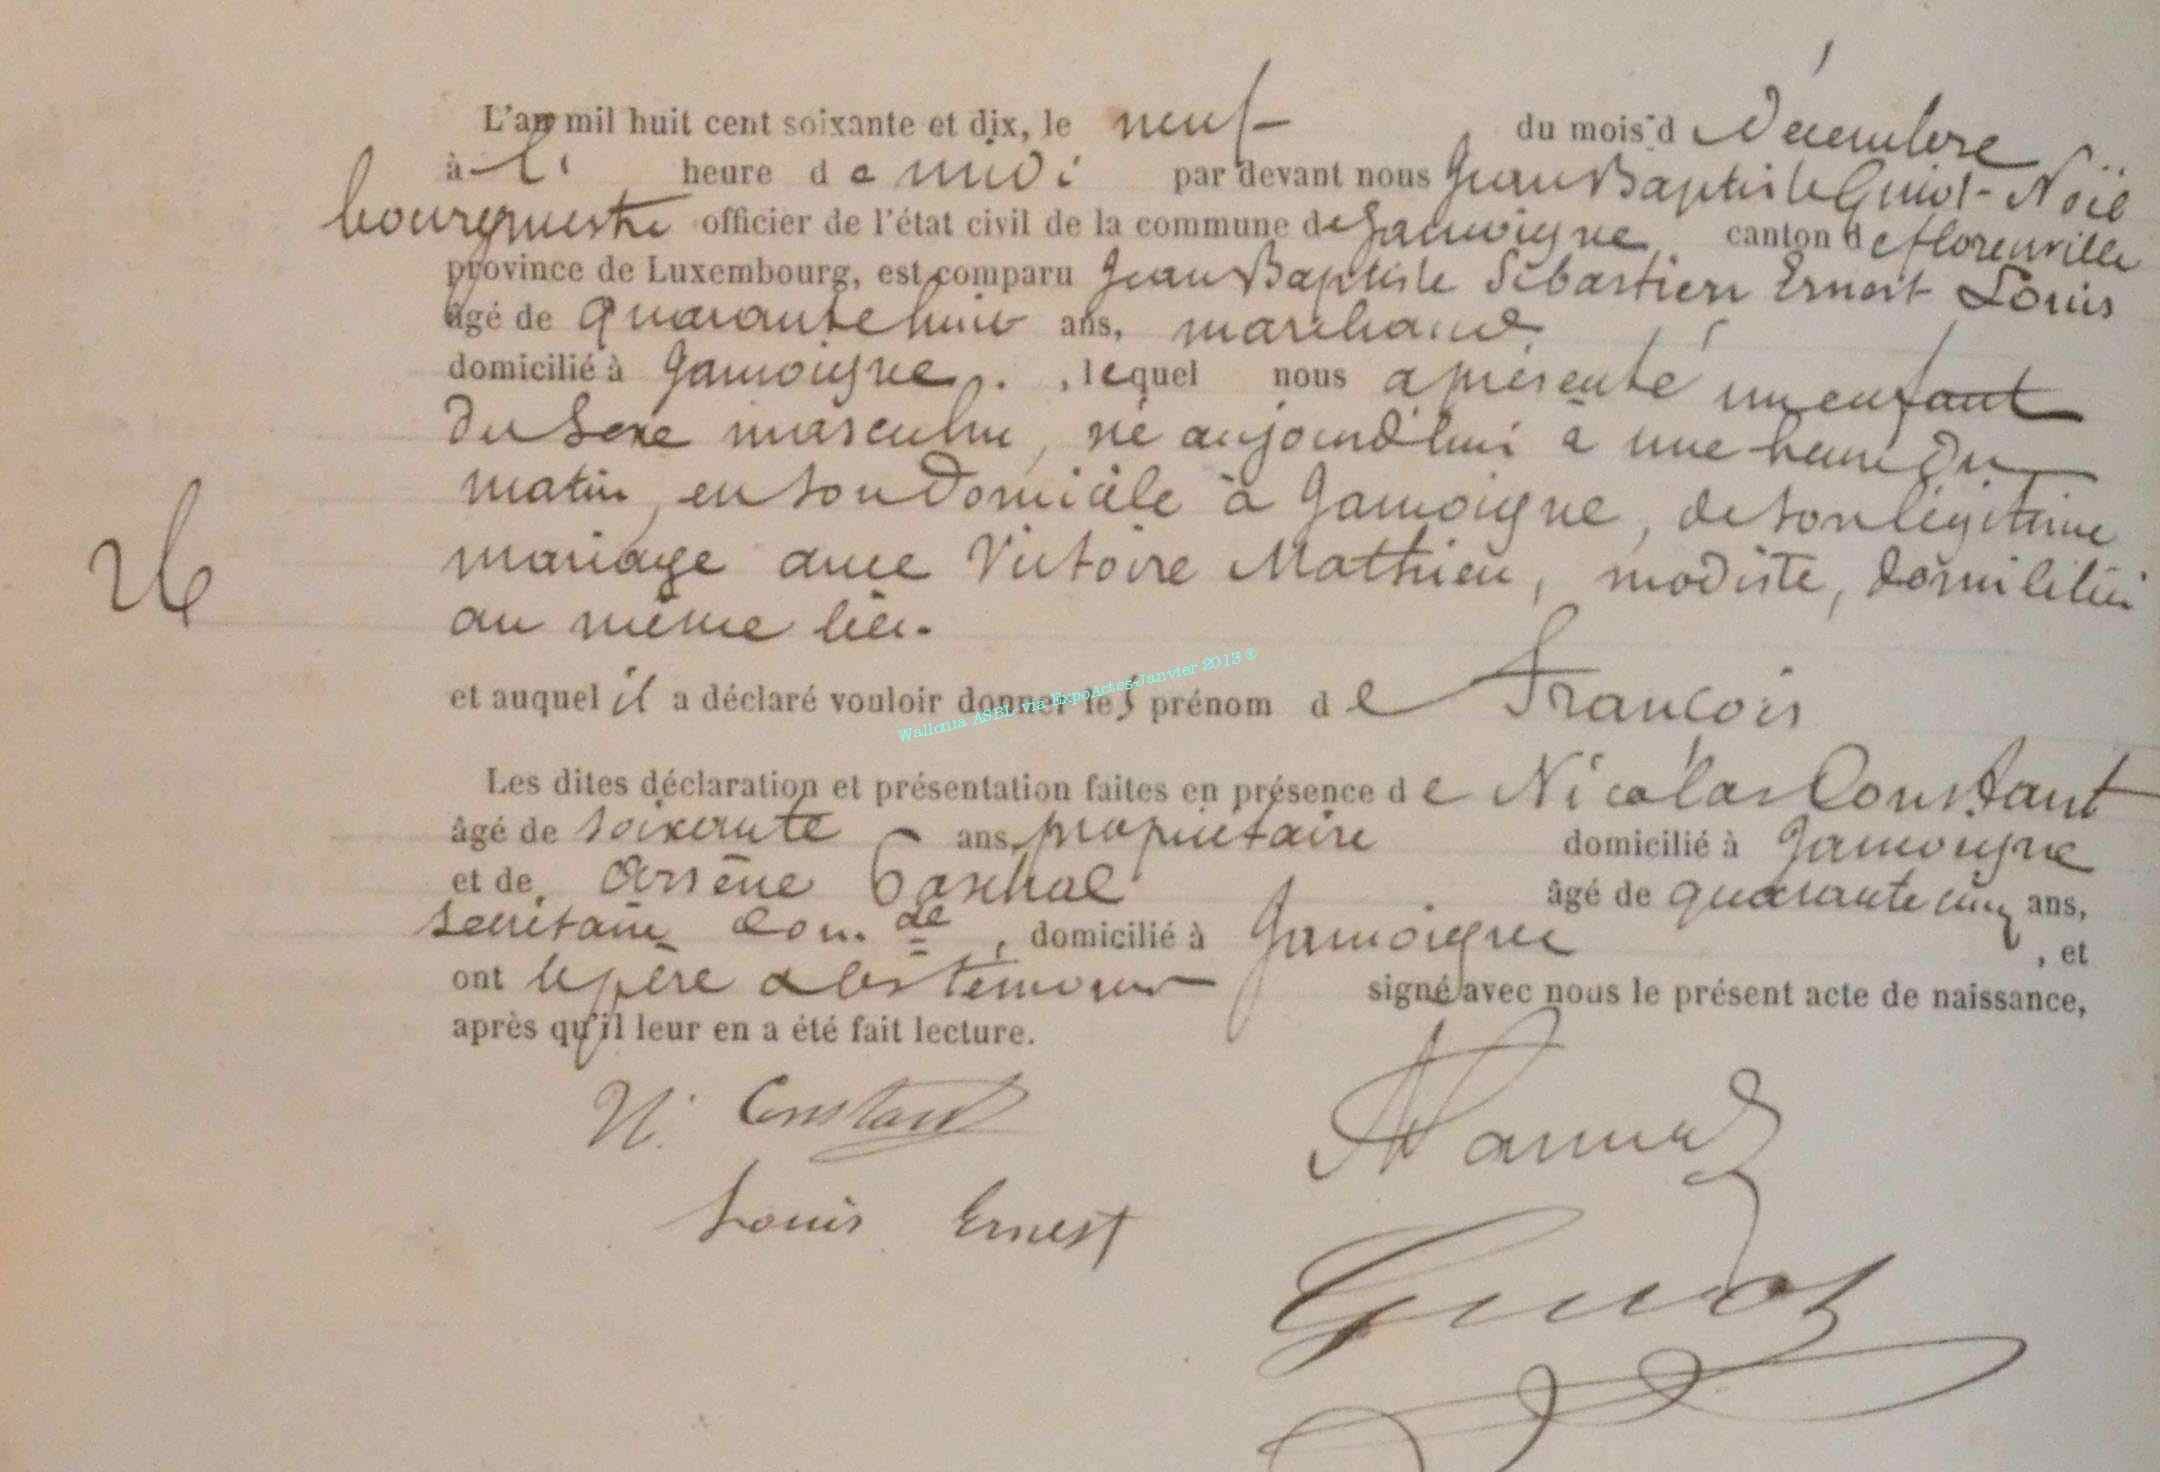 L'an mil huit cent soixante et dix, le neuf du mois d décembre
à l' heure de midi par devant nous Jean Baptiste Guiot-Noël
bourgmestre officier de l'état civil de la commune de Jamoigne canton de florenville
province de Luxembourg, est comparu Jean Baptiste Sébastien Ernest Louis
âgé de quarante huit ans, marchand
domicilié à Jamoigne, lequel nous a présenté un enfant
du sexe masculin, né aujourd'hui à une heure du
matin, en son domicile à Jamoigne, de son légitime
mariage avec Victoire Mathieu, modiste, domiciliée
au même lieu.
et auquel il a déclaré vouloir donner les prénom de François
Wallonia ASBL via ExpoActes-Janvier 2013 ®
Les dites déclaration et présentation faites en présence de Nicolas Constant
âgé de soixante ans, propriétaire domicilié à Jamoigne
et de Arsène âgé de quarante cinq ans,
secrétaire com.de, domicilié à Jamoigne, et
ont le père & les témoins signé avec nous le présent acte de naissance,
après qu'il leur en a été fait lecture.
N. Constant
Louis Ernest
Guiot